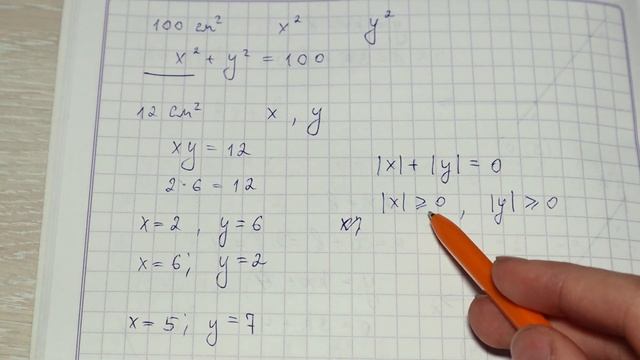 100 см² x² y²
x² + y² = 100
12 см² x , y
xy = 12
2·6 = 12
x = 2 , y = 6
x = 6; y = 2
x = 5; y = 7
|x| + |y| = 0
|x| ⩾ 0 , |y| ⩾ 0